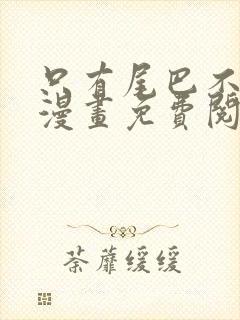 只有尾巴不
漫畫免費閱
荼蘼缓缓